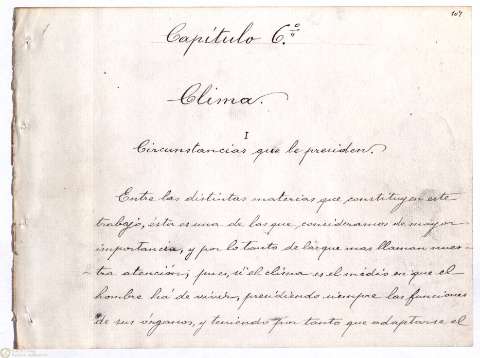 107
Capítulo 6.º
Clima.
I
Circunstancias que le presiden.
Entre las distintas materias que constituyen este
trabajo, ésta es una de las que consideramos de mayor
importancia, y por lo tanto de las que mas llaman nues-
tra atención; pues, si el clima es el medio en que el
hombre há de vivir, presidiendo siempre las funciones
de sus órganos, y teniendo por tanto que adaptarse el